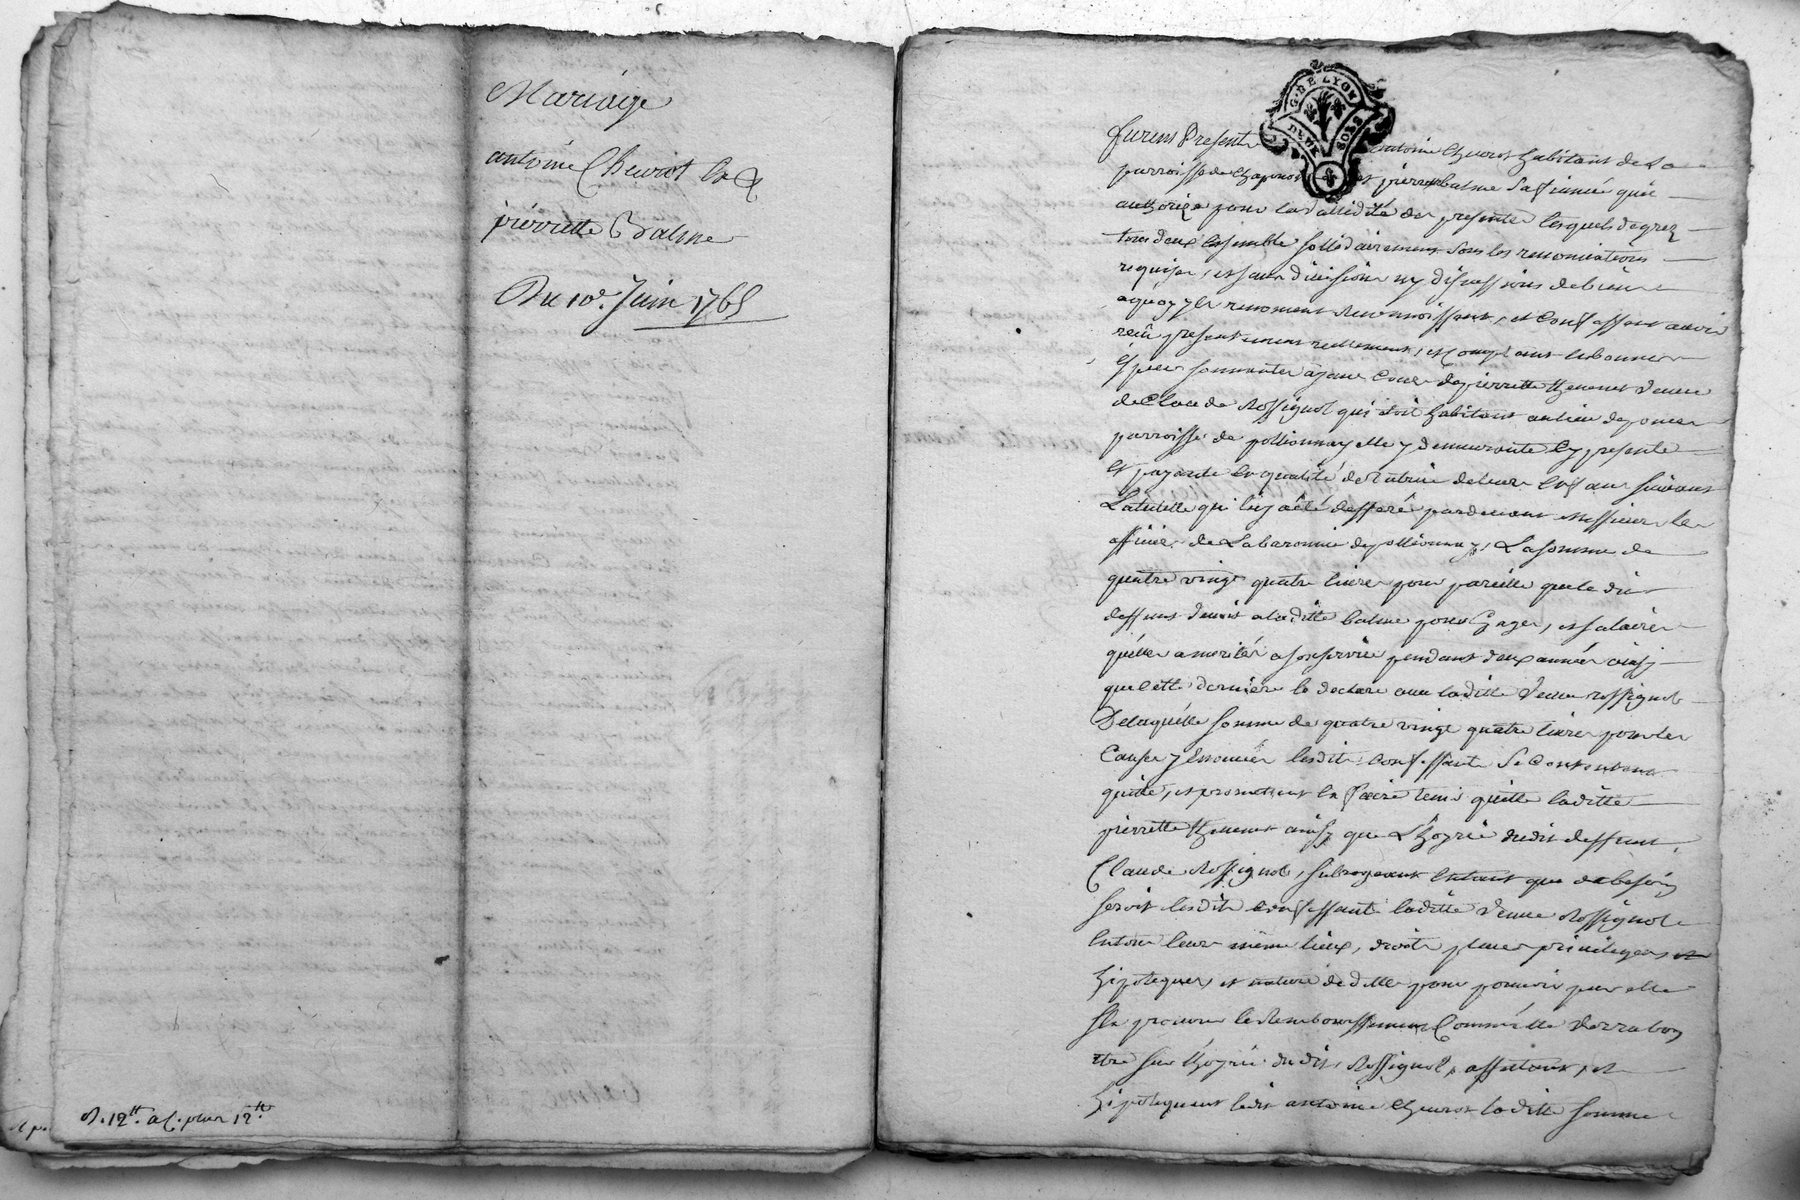 Mariage
antoine Cheurot &
pierrette Balme
Du 10e. Juin 1765
R. 12tt. a C. pour 12tt.
G. DE LYON
Furent Presents antoine Cheurot habitant de la
parroisse de Chaponost et pierrette balme sa fiancée qu'il
authorize pour la validité des presentes lesquels de grez
tous deux Ensemble sollidairement sous les renonciations
requises, et sans division ny discussions de biens
a quoy yls renoncent reconnoissent, et Confessent avoir
reçû presentement reellement, et Comptant en bonnes
Especes sonnantes ayant Cours de pierrette veuve
de Claude Rossignol qui étoit habitant au lieu de
parroisse de pollionnay elle y demeurante Cy presente
Et payante En qualité de tutrice de leurs Enfans suivant
La tutelle qui luy a été defferé pardevant Messieurs les
officiers de La baronnie de pollionnay, La somme de
quatre vingt quatre livres pour pareille que le dit
deffunt devoit a laditte balme pour Gages, et salaires
qu'elle a merités a son service pendant deux années ainsi
que Cette derniere le declare avec laditte Veuve rossignol
De laquelle somme de quatre vingt quatre livres pour les
Causes y Enoncées lesdits Confessants se Contentent
quitte, et promettent En faire tenir quitte laditte
pierrette ainsy que L'hoyrie dudit deffunt
Claude Rossignol, subrogeant Entant que de besoin
seroit lesdits Confessants laditte Veuve Rossignol
En tous leurs mêmes lieux, droits places privileges et
hipoteques, et nature de dette pour pouvoir par elle
s'En procurer le Remboursement Comm'Elle verra bon
etre sur l'hoyrie dudit Rossignol, assurant, et
hipotequant ledit antoine Cheurot laditte somme